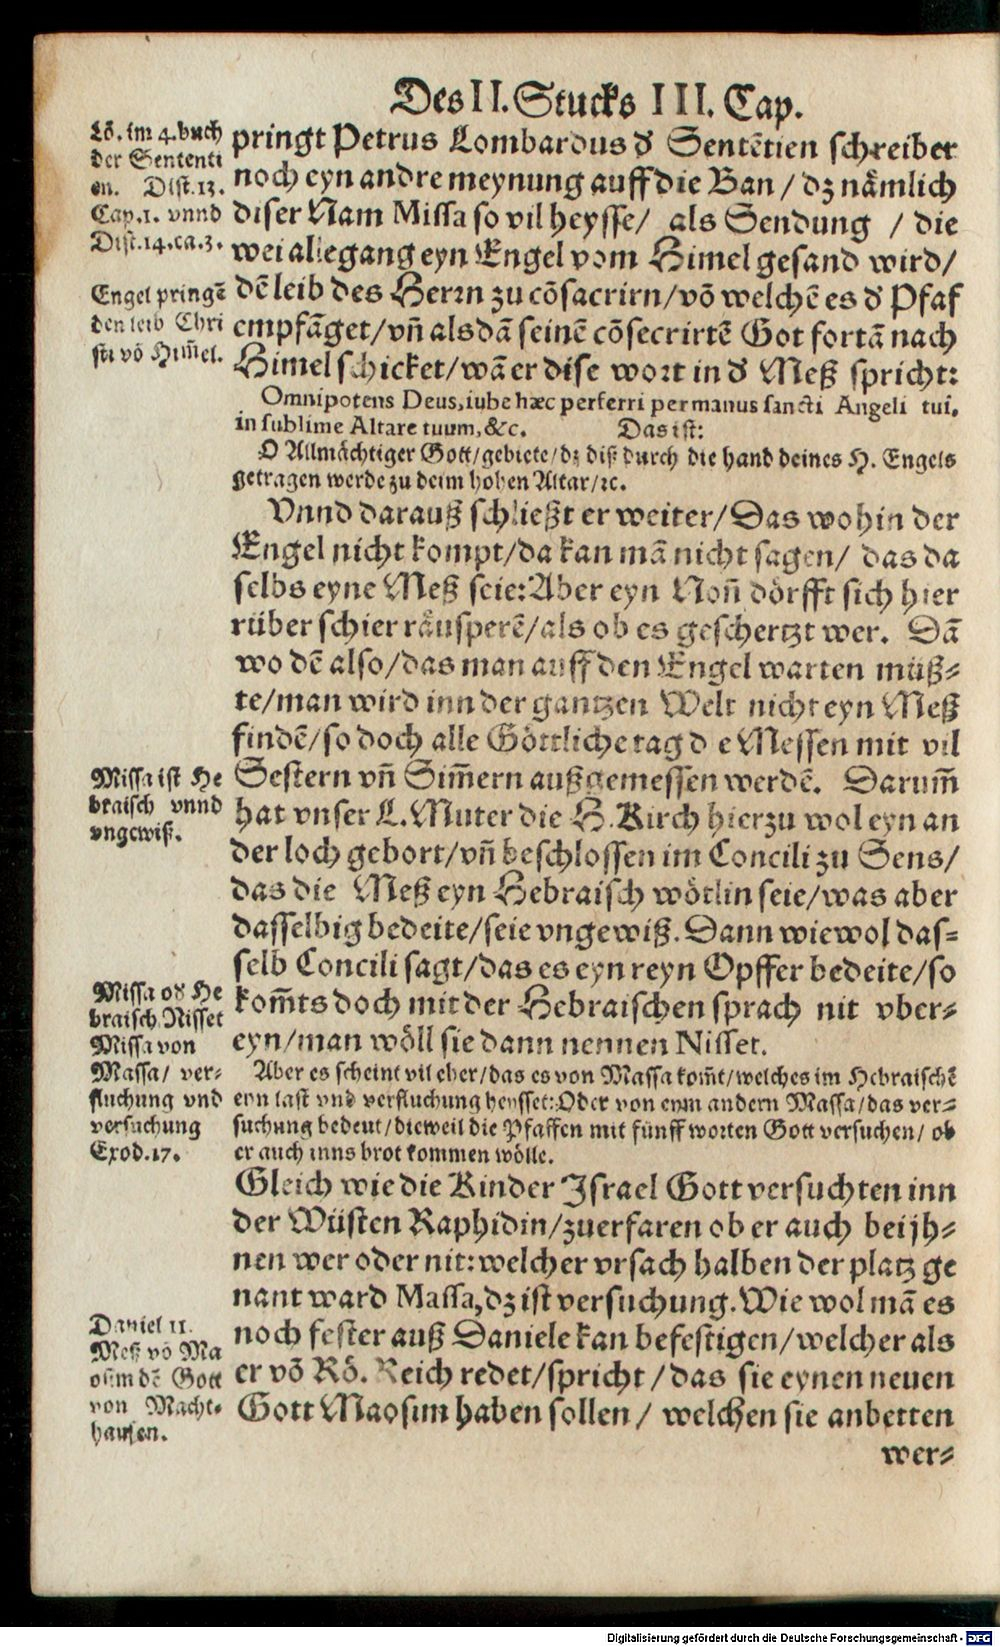 Des II. Stucks III. Cap.
Lō. im 4. buch
der Sententi
en. Dist. 13.
Cap. 1. vnnd
Dist. 14. ca. 3.
Engel pringē
den leib Chri
sti vō Him̄el.
pringt Petrus Lombardus d' Sentētien schreiber
noch eyn andre meynung auff die Ban / dz nämlich
diser Nam Missa so vil heysse / als Sendung / die
wei allegang eyn Engel vom Himel gesand wird /
dē leib des Herrn zu cōsacrirn / vō welchē es d' Pfaf
empfāget / vn̄ alsdā seinē cōsecrirtē Got fortā nach
Himel schicket / wā er dise wort in d' Meß spricht:
Omnipotens Deus, iube hæc perferri per manus sancti Angeli tui,
in sublime Altare tuum, &c. Das ist:
O Allmächtiger Gott / gebiete / dz diß durch die hand deines H. Engels
getragen werde zu deim hohen Altar / ꝛc.
Vnnd darauß schließt er weiter / Das wohin der
Engel nicht kompt / da kan mā nicht sagen / das da
selbs eyne Meß seie: Aber eyn Non̄ dörfft sich hier
rüber schier räusperē / als ob es geschertzt wer. Dā
wo dē also / das man auff den Engel warten müß⸗
te / man wird inn der gantzen Welt nicht eyn Meß
findē / so doch alle Göttliche tag d e Messen mit vil
Sestern vn̄ Sim̄ern außgemessen werdē. Darum̄
hat vnser L. Muter die H. Kirch hierzu wol eyn an
der loch gebort / vn̄ beschlossen im Concili zu Sens /
das die Meß eyn Hebraisch wötlin seie / was aber
dasselbig bedeite / seie vngewiß. Dann wiewol das⸗
selb Concili sagt / das es eyn reyn Opffer bedeite / so
kom̄ts doch mit der Hebraischen sprach nit vber⸗
eyn / man wöll sie dann nennen Nisset.
Missa ist He
braisch vnnd
vngewiß.
Missa od' He
braisch Nisset
Missa von
Massa / ver⸗
fluchung vnd
versuchung
Exod. 17.
Aber es scheint vil eher / das es von Massa kom̄t / welches im Hebraischē
eyn last vnd verfluchung heysset: Oder von eym andern Massa / das ver⸗
suchung bedeut / dieweil die Pfaffen mit fünff worten Gott versuchen / ob
er auch inns brot kommen wölle.
Gleich wie die Kinder Israel Gott versuchten inn
der Wüsten Raphidin / zuerfaren ob er auch bei jh⸗
nen wer oder nit: welcher vrsach halben der platz ge
nant ward Massa, dz ist versuchung. Wie wol mā es
noch fester auß Daniele kan befestigen / welcher als
er vō Rö. Reich redet / spricht / das sie eynen neuen
Gott Maosim haben sollen / welchen sie anbetten
Daniel 11.
Meß vō Ma
osim dē Gott
von Macht⸗
hausen.
wer⸗
Digitalisierung gefördert durch die Deutsche Forschungsgemeinschaft - DFG